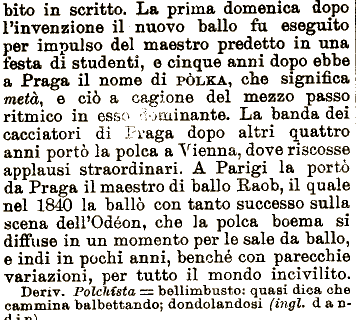 bito in scritto. La prima domenica dopo
l'invenzione il nuovo ballo fu eseguito
per impulso del maestro predetto in una
festa di studenti, e cinque anni dopo ebbe
a Praga il nome di PÒLKA, che significa
metà, e ciò a cagione del mezzo passo
ritmico in esso dominante. La banda dei
cacciatori di Praga dopo altri quattro
anni portò la polca a Vienna, dove riscosse
applausi straordinari. A Parigi la portò
da Praga il maestro di ballo Raob, il quale
nel 1840 la ballò con tanto successo sulla
scena dell'Odéon, che la polca boema si
diffuse in un momento per le sale da ballo,
e indi in pochi anni, benché con parecchie
variazioni, per tutto il mondo incivilito.
Deriv. Polchísta = bellimbusto: quasi dica che
cammina balbettando; dondolandosi (ingl. dan-